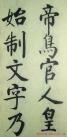 帝鳥官人皇
始制文字乃